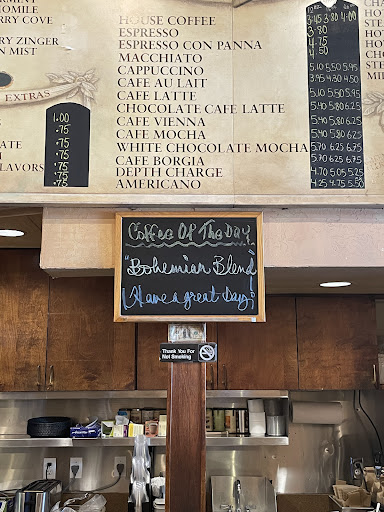 MERY CREMENT
HOMILE
RRY COVE
RRY ZINGER
N MIST
EXTRAS
1.00
.75
.75
.75
.75
.75
LAVORS
HOUSE COFFEE
ESPRESSO
ESPRESSO CON PANNA
MACCHIATO
CAPPUCCINO
CAFE AU LAIT
CAFE LATTE
CHOCOLATE CAFE LATTE
CAFE VIENNA
CAFE MOCHA
WHITE CHOCOLATE MOCHA
CAFE BORGIA
DEPTH CHARGE
AMERICANO
3.45 3.80 4.00
3.80
4.75
4.50
5.10 5.50 5.95
3.95 4.30 4.50
5.10 5.50 5.95
5.40 5.80 6.25
5.40 5.80 6.25
5.40 5.80 6.25
5.70 6.25 6.75
5.70 6.25 6.75
4.70 5.05 5.25
4.25 4.75 5.50
Coffee Of The Day
"Bohemian Blend"
Have a great Day!
Thank You For
Not Smoking